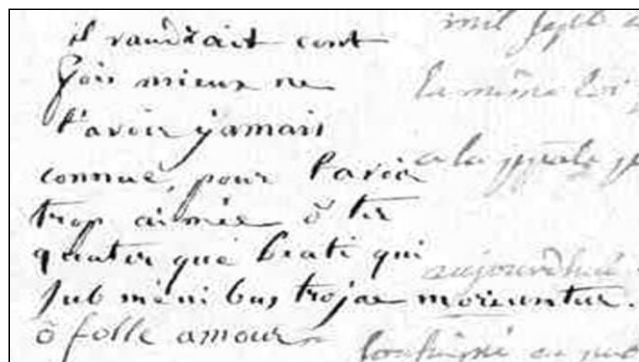 il vaudrait cent
fois mieux ne
l'avoir jamais
connue, pour l'avoir
trop aimée ô ter
quater que beati qui
sub mènibus trojae moriuntur.
ô folle amour
mil sept
la même
a la
aujourdhui